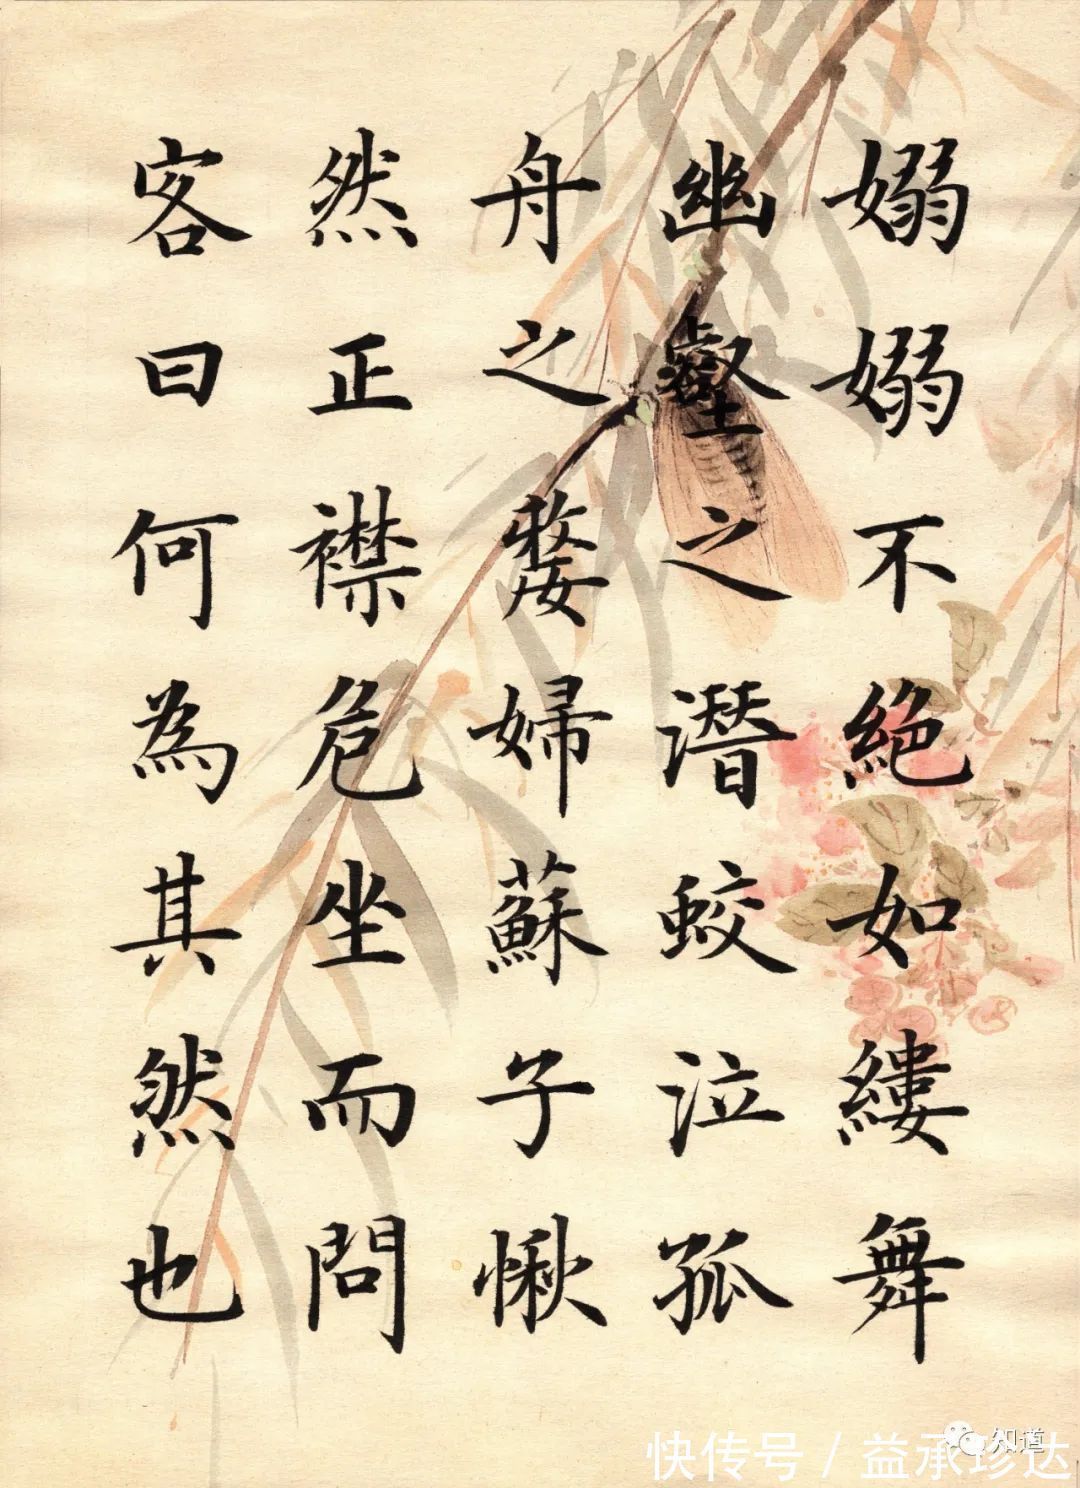 嫋嫋不絕如縷舞
幽壑之潛蛟泣孤
舟之嫠婦蘇子愀
然正襟危坐而問
客曰何為其然也
知道
快传号 / 益承珍达